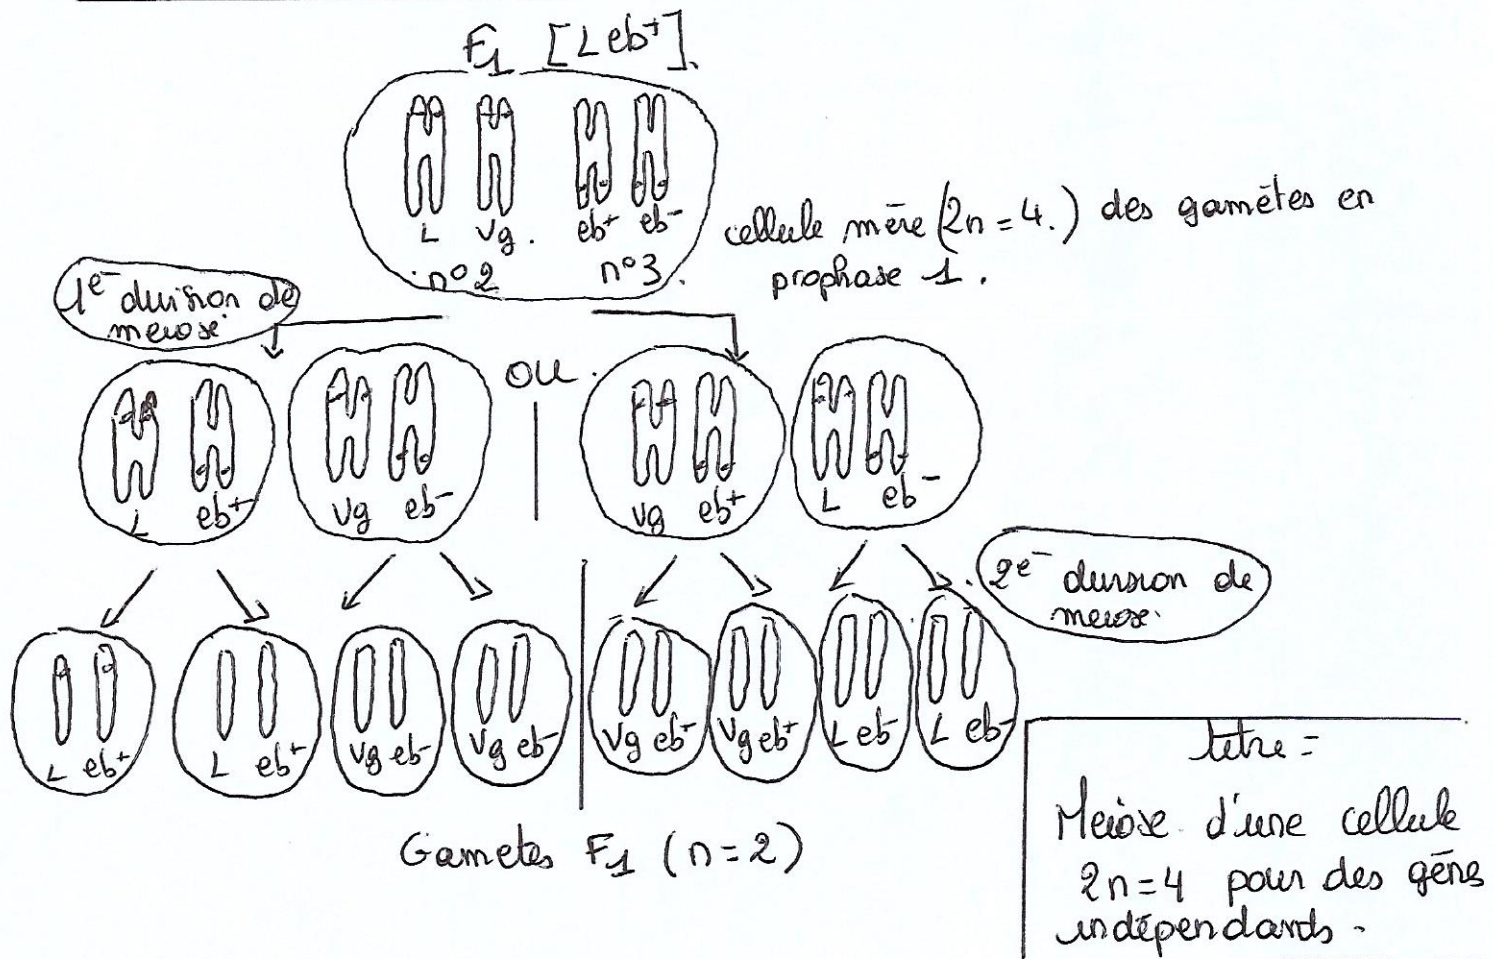 F1 [L eb+].
L vg. eb+ eb-
n°2 n°3.
cellule mère (2n = 4.) des gamètes en
prophase 1.
1e- division de
meiose.
ou.
L eb+ vg eb- vg eb+ L eb-
2e- division de
meiose.
L eb+ L eb+ vg eb- vg eb- vg eb+ vg eb+ L eb- L eb-
Gametes F1 (n = 2)
titre =
Meiose d'une cellule
2n=4 pour des gènes
indépendants.